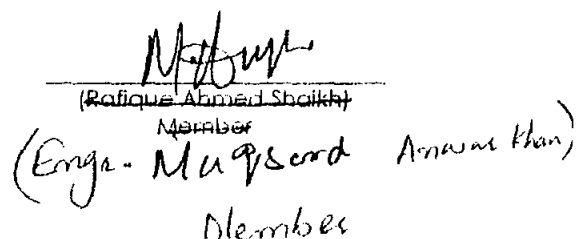 (Rafique Ahmed Shaikh)
Member
(Engr. Maqsood Anwar Khan)
Member